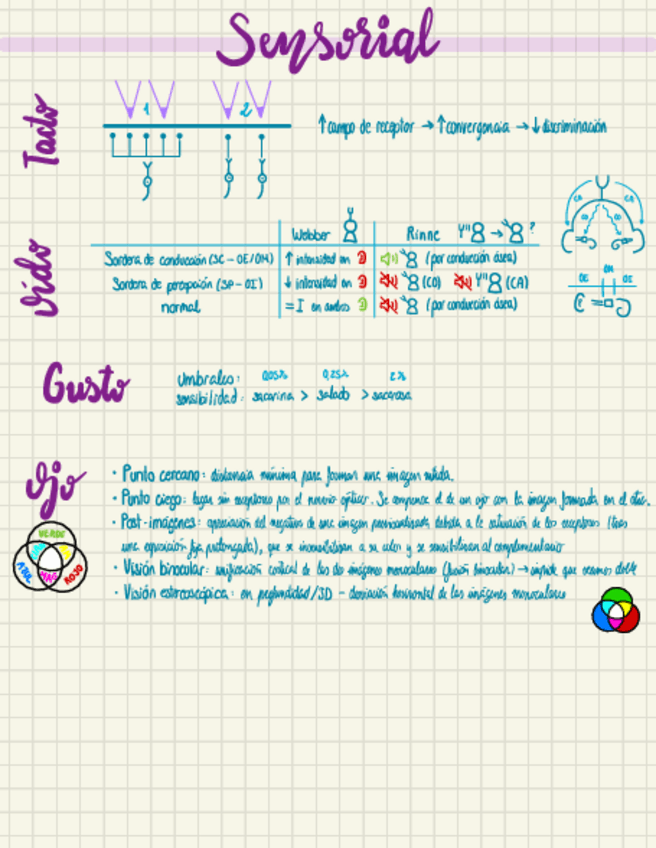 Sensorial
Tacto
1 2
↑ campo de receptor → ↑ convergencia → ↓ discriminación
Oído
Webber Rinne ?
Sordera de conducción (SC - OE/OM) ↑ intensidad en (por conducción ósea)
Sordera de percepción (SP - OI) ↓ intensidad en (CO) (CA)
normal = I en ambos (por conducción ósea)
CA CA
CO CO
OE OM OI
Gusto
Umbrales: 0,05% 0,25% 2%
sensibilidad: sacarina > salado > sacarosa
Ojo
VERDE
AZUL ROJO
MAG
• Punto cercano: distancia mínima para formar una imagen nítida.
• Punto ciego: lugar sin receptores por el nervio óptico. Se compensa el de un ojo con la imagen formada en el otro.
• Post-imágenes: apreciación del negativo de una imagen previsualizada debida a la saturación de los receptores (tras
una exposición fija prolongada), que se insensibilizan a su color y se sensibilizan al complementario
• Visión binocular: unificación cortical de las dos imágenes monoculares (fusión binocular) → impide que veamos doble
• Visión estereoscópica: en profundidad/3D - desviación horizontal de las imágenes monoculares